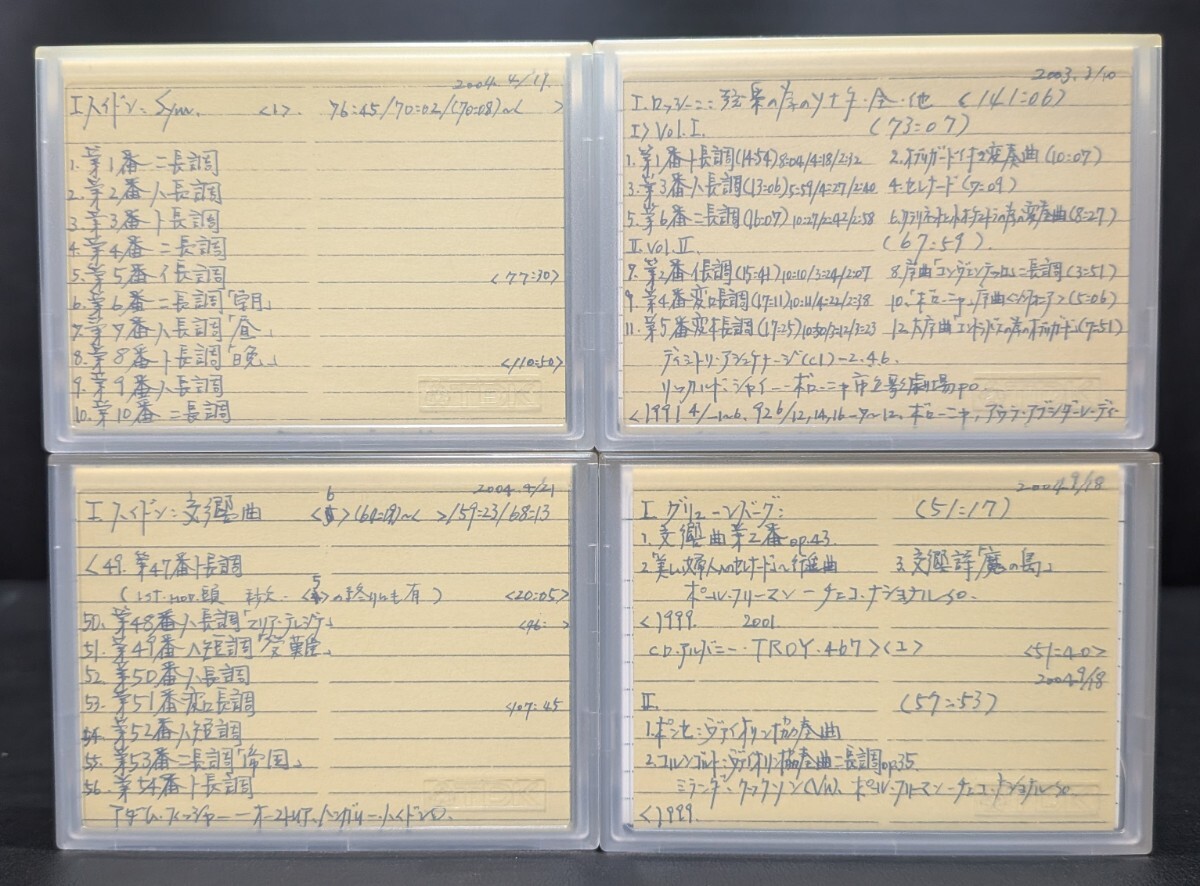 2004. 4/19.
I.ハイドン:Sym. <1>. 76:45/70:02/(70:08)~< >
1. 第1番ニ長調
2. 第2番ハ長調
3. 第3番ト長調
4. 第4番ニ長調
5. 第5番イ長調 <77:30>
6. 第6番ニ長調「朝」
7. 第7番ハ長調「昼」
8. 第8番ト長調「晩」 <110:50>
9. 第9番ハ長調
10. 第10番ニ長調
TDK
2003. 3/10
I.ロッシーニ:弦楽の為のソナタ・全・他 <141:06>
I> Vol.I. (73:07)
1. 第1番ト長調(14:54)8:04/4:18/2:32 2. オブリガート付き変奏曲(10:07)
3. 第3番ハ長調(13:06)5:59/4:27/2:40 4. セレナード(7:09)
5. 第6番ニ長調(16:07)10:27/2:42/2:58 6. クラリネットとオーケストラの為の変奏曲(8:27)
II. Vol.II. (67:59).
7. 第2番イ長調(15:41)10:10/3:24/2:07 8. 序曲「コンヴェンテッロ」ニ長調(3:51)
9. 第4番変ロ長調(17:11)10:11/4:22/2:38 10.「ボローニャ」序曲<シンフォニア>(5:06)
11. 第5番変ホ長調(17:25)10:50/3:12/3:23 12. 大序曲 (7:51)
ディミトリ・アシュケナージ(cl)-2.4.6.
リッカルド・シャイー-ボローニャ市立歌劇場po.
<1991 4/-1~6, 92 6/12,14,16-7~12. ボローニャ,
2004. 4/21
I.ハイドン:交響曲 <6>(64:18)~< >/59:23/68:13
<49. 第47番ト長調
(1st-mov.頭 秒欠. <5>の終りにも有) <20:05>
50. 第48番ハ長調「マリア・テレジア」 <46: >
51. 第49番ヘ短調「受難」
52. 第50番ハ長調
53. 第51番変ロ長調 <107:45
54. 第52番ハ短調
55. 第53番ニ長調「帝国」
56. 第54番ト長調
TDK
アダム・フィッシャー-オーストリア,ハンガリー・ハイドンo.
2004.9/18
I.グリューンバーグ: (51:17)
1. 交響曲第2番op.43.
2.「美しい婦人へのセレナード」~行進曲 3. 交響詩「魔の島」
ポール・フリーマン-チェコ・ナショナルso.
<1999. 2001
<D.アルバニー・TROY.467><I> <51:40>
2004.9/18
II. (57:53)
1. ポンセ:ヴァイオリン協奏曲
2. コルンゴルト:ヴァイオリン協奏曲ニ長調op.35.
ミランダ・クックソン(Vn), ポール・フリーマン-チェコ・ナショナルso
<1999.
TDK